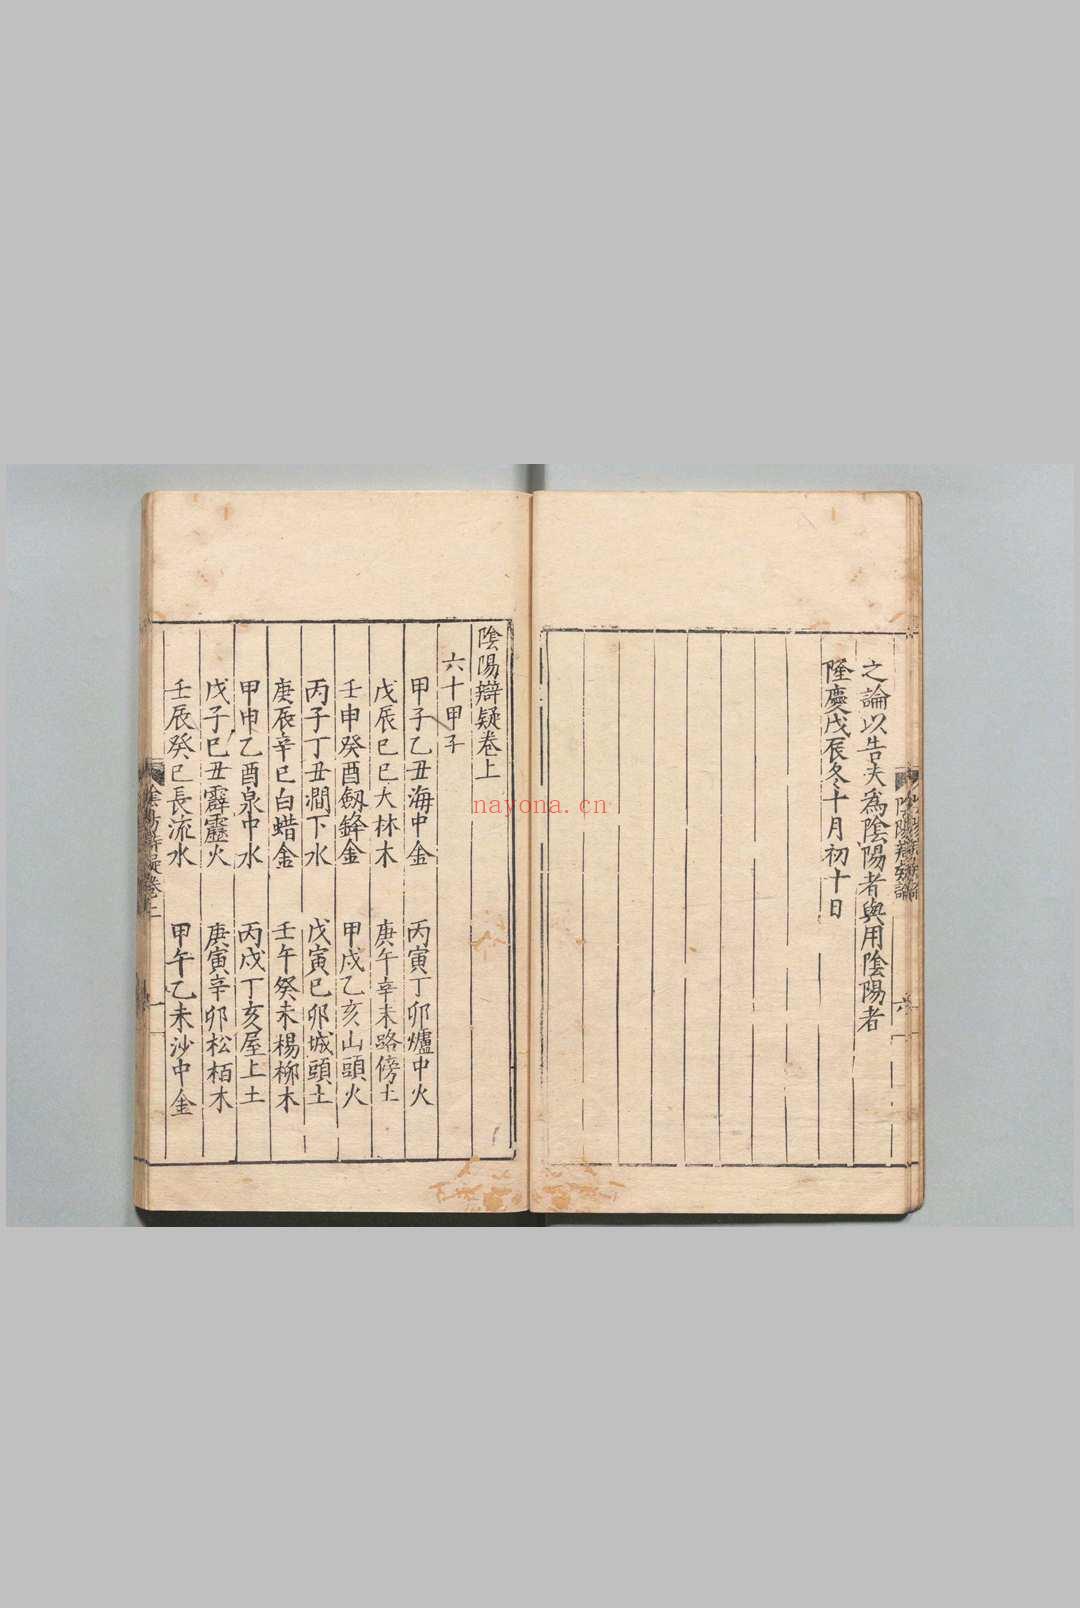 之論以告夫爲陰陽者與用陰陽者
隆慶戊辰冬十月初十日
陰陽辯疑論
六
陰陽辯疑卷上
六十甲子
甲子乙丑海中金
丙寅丁卯爐中火
戊辰己巳大林木
庚午辛未路傍土
壬申癸酉劔鋒金
甲戌乙亥山頭火
丙子丁丑澗下水
戊寅己卯城頭土
庚辰辛巳白蜡金
壬午癸未楊柳木
甲申乙酉泉中水
丙戌丁亥屋上土
戊子己丑霹靂火
庚寅辛卯松栢木
壬辰癸巳長流水
甲午乙未沙中金
nayona.cn